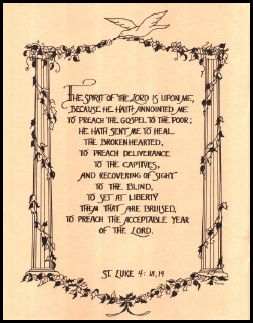 THE SPIRIT OF THE LORD IS UPON ME,
BECAUSE HE HATH ANNOINTED ME
TO PREACH THE GOSPEL TO THE POOR;
HE HATH SENT ME TO HEAL
THE BROKEN HEARTED,
TO PREACH DELIVERANCE
TO THE CAPTIVES,
AND RECOVERING OF SIGHT
TO THE BLIND,
TO SET AT LIBERTY
THEM THAT ARE BRUISED,
TO PREACH THE ACCEPTABLE YEAR
OF THE LORD.
ST. LUKE 4: 18,19